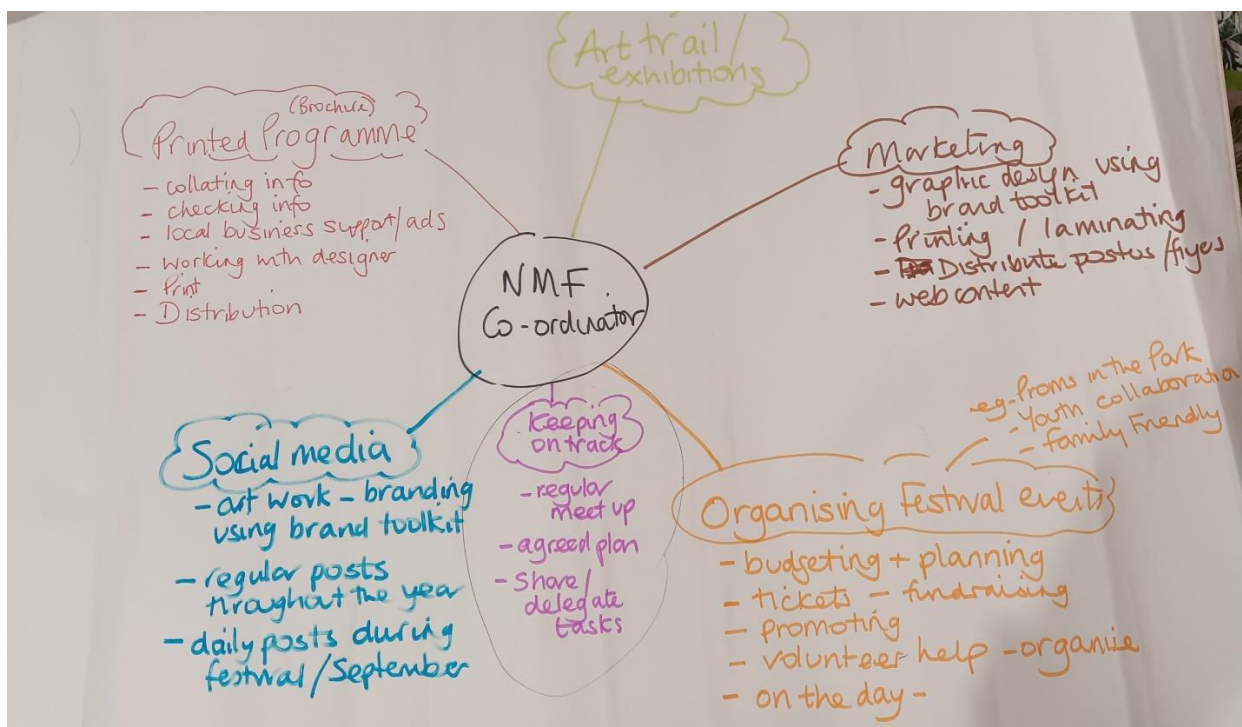 Art trail/
exhibitions
(Brochure)
Printed Programme
- collating info
- checking info
- local business support/ads
- working with designer
- Print
- Distribution
Marketing
- graphic design using
brand toolkit
- Printing / laminating
- Distribute posters/flyers
- web content
NMF
Co-ordinator
Social media
- art work - branding
using brand toolkit
- regular posts
throughout the year
- daily posts during
festival/September
Keeping
on track
- regular
meet up
- agreed plan
- Share/
delegate
tasks
eg- Proms in the Park
- Youth collaboration
- Family Friendly
Organising Festival events
- budgeting + planning
- tickets - fundraising
- promoting
- volunteer help - organise
- on the day -